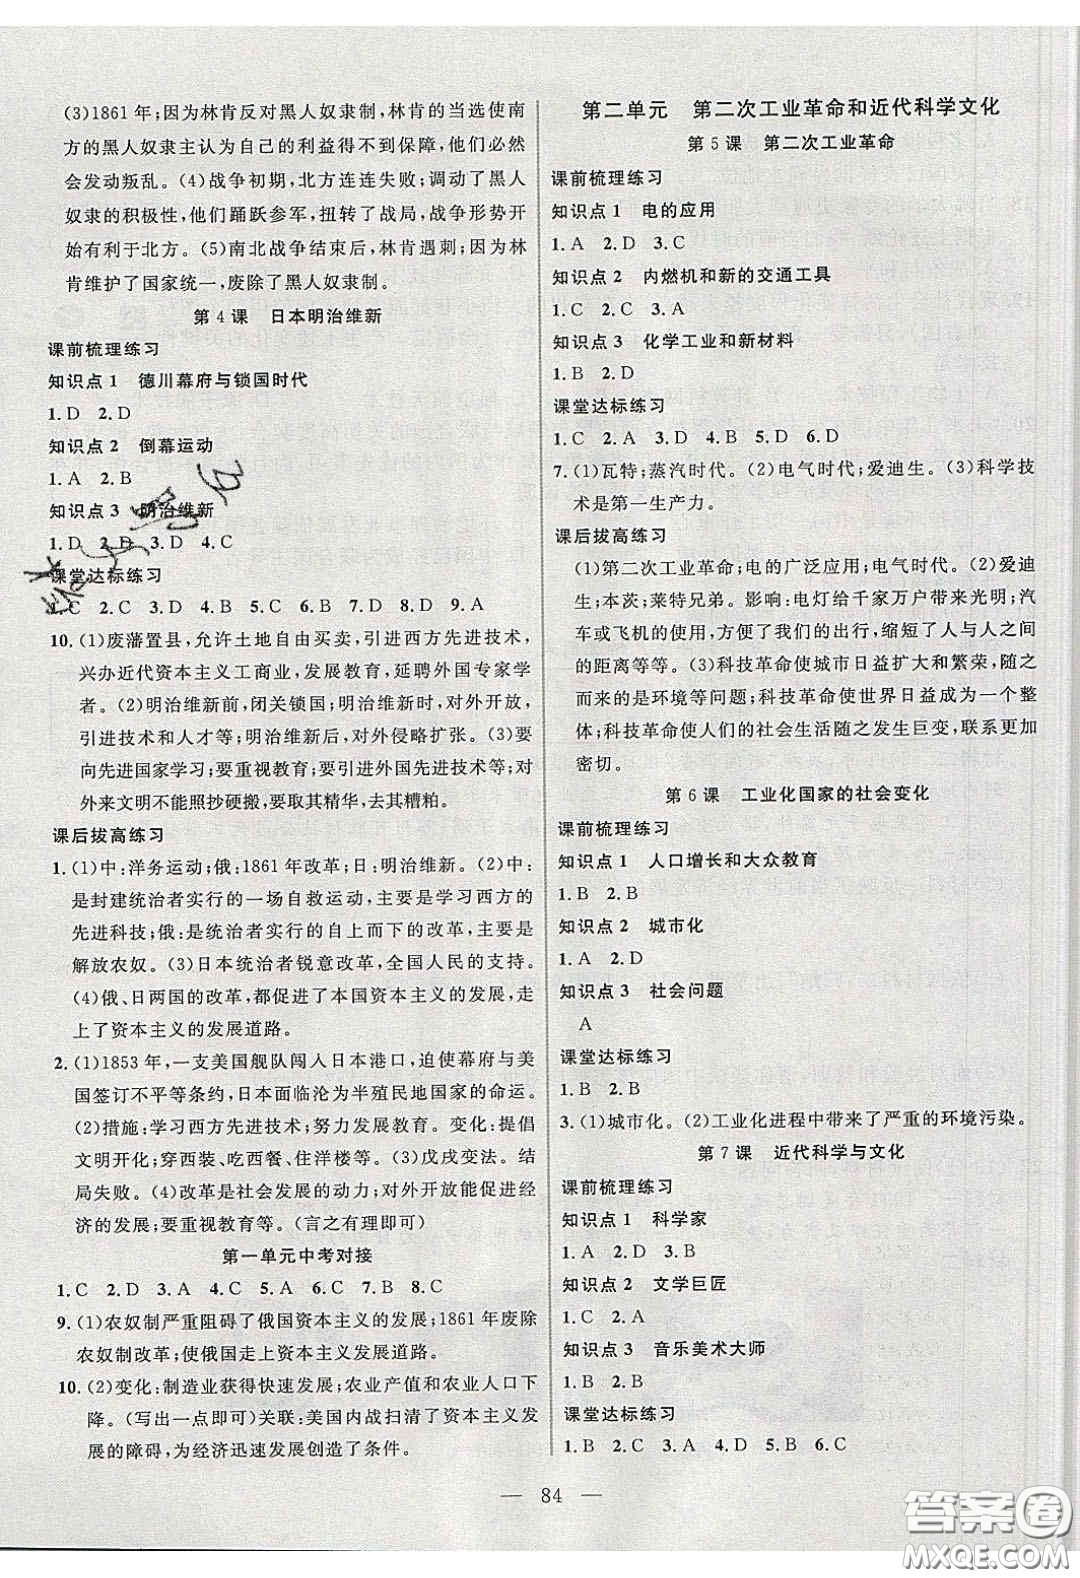 (3)1861年;因为林肯反对黑人奴隶制,林肯的当选使南
方的黑人奴隶主认为自己的利益得不到保障,他们必然
会发动叛乱。(4)战争初期,北方连连失败;调动了黑人
奴隶的积极性,他们踊跃参军,扭转了战局,战争形势开
始有利于北方。(5)南北战争结束后,林肯遇刺;因为林
肯维护了国家统一,废除了黑人奴隶制。
第4课 日本明治维新
课前梳理练习
知识点1 德川幕府与锁国时代
1.D 2.D
知识点2 倒幕运动
1.A 2.B
知识点3 明治维新
1.D 2.D 3.D 4.C
课堂达标练习
1.C 2.C 3.D 4.B 5.C 6.C 7.D 8.D 9.A
10.(1)废藩置县,允许土地自由买卖,引进西方先进技术,
兴办近代资本主义工商业,发展教育,延聘外国专家学
者。(2)明治维新前,闭关锁国;明治维新时,对外开放,
引进技术和人才等;明治维新后,对外侵略扩张。(3)要
向先进国家学习;要重视教育;要引进外国先进技术等;对
外来文明不能照抄硬搬,要取其精华,去其糟粕。
课后拔高练习
1.(1)中:洋务运动;俄:1861年改革;日:明治维新。(2)中:
是封建统治者实行的一场自救运动,主要是学习西方的
先进科技;俄:是统治者实行的自上而下的改革,主要是
解放农奴。(3)日本统治者锐意改革,全国人民的支持。
(4)俄、日两国的改革,都促进了本国资本主义的发展,走
上了资本主义的发展道路。
2.(1)1853年,一支美国舰队闯入日本港口,迫使幕府与美
国签订不平等条约,日本面临沦为半殖民地国家的命运。
(2)措施:学习西方先进技术;努力发展教育。变化:提倡
文明开化;穿西装、吃西餐、住洋楼等。(3)戊戌变法。结
局失败。(4)改革是社会发展的动力;对外开放能促进经
济的发展;要重视教育等。(言之有理即可)
第一单元中考对接
1.C 2.D 3.A 4.C 5.A 6.C 7.B 8.C
9.(1)农奴制严重阻碍了俄国资本主义的发展;1861年废除
农奴制改革;使俄国走上资本主义发展道路。
10.(2)变化:制造业获得快速发展;农业产值和农业人口下
降。(写出一点即可)关联:美国内战扫清了资本主义发
展的障碍,为经济迅速发展创造了条件。
第二单元 第二次工业革命和近代科学文化
第5课 第二次工业革命
课前梳理练习
知识点1 电的应用
1.A 2.D 3.C
知识点2 内燃机和新的交通工具
1.C 2.C 3.A
知识点3 化学工业和新材料
1.B 2.D
课堂达标练习
1.C 2.A 3.D 4.B 5.D 6.D
7.(1)瓦特;蒸汽时代。(2)电气时代;爱迪生。(3)科学技
术是第一生产力。
课后拔高练习
(1)第二次工业革命;电的广泛应用;电气时代。(2)爱迪
生;本茨;莱特兄弟。影响:电灯给千家万户带来光明;汽
车或飞机的使用,方便了我们的出行,缩短了人与人之间
的距离等等。(3)科技革命使城市日益扩大和繁荣,随之
而来的是环境等问题;科技革命使世界日益成为一个整
体;科技革命使人们的社会生活随之发生巨变,联系更加
密切。
第6课 工业化国家的社会变化
课前梳理练习
知识点1 人口增长和大众教育
1.B 2.B
知识点2 城市化
1.A 2.D
知识点3 社会问题
A
课堂达标练习
1.B 2.B
3.(1)城市化。(2)工业化进程中带来了严重的环境污染。
第7课 近代科学与文化
课前梳理练习
知识点1 科学家
1.A 2.D 3.B
知识点2 文学巨匠
1.C 2.A
知识点3 音乐美术大师
1.B 2.B
课堂达标练习
1.C 2.B 3.A 4.D 5.B 6.C
— 84 —
答案圈
MXQE.COM